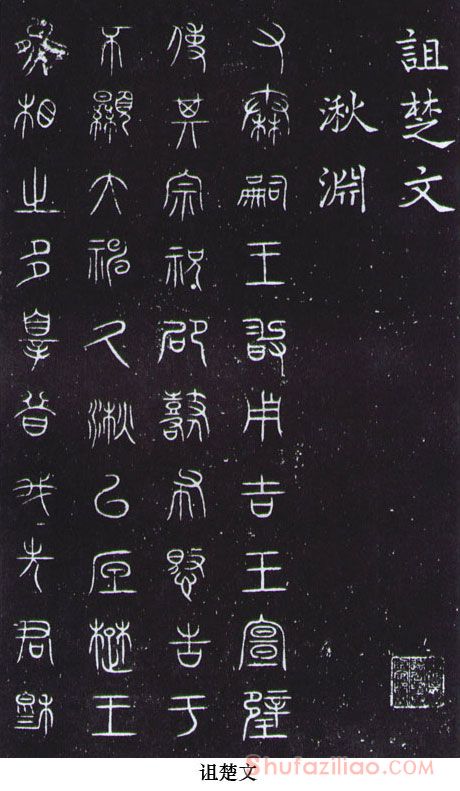 詛楚文
湫淵
又秦嗣王敢用吉玉宣璧
使其宗祝邵鼛布憝告于
不顯大神久湫㠯厎楚王
熊相之多辠昔我先君穆
诅楚文
Shufaziliao.com